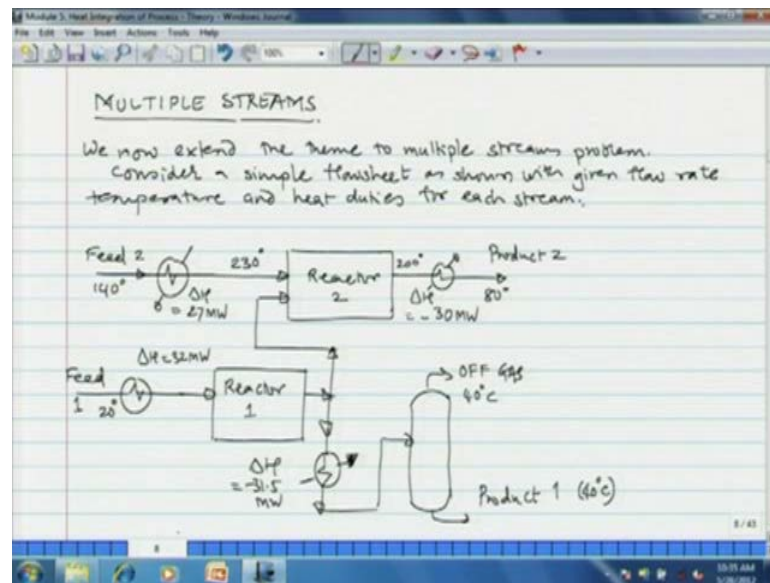 Module 5. Heat Integration of Process - Theory - Windows Journal
File Edit View Insert Actions Tools Help
100%
MULTIPLE STREAMS
We now extend the theme to multiple streams problem.
Consider a simple flowsheet as shown with given flow rate
temperature and heat duties for each stream.
Feed 2
140°
ΔH
= 27MW
230°
Reactor
2
200°
ΔH
= -30MW
Product 2
80°
ΔH=32MW
Feed
1 20°
Reactor
1
OFF GAS
40°C
ΔH
= -31.5
MW
Product 1 (40°C)
8 / 43
8
10:35 AM